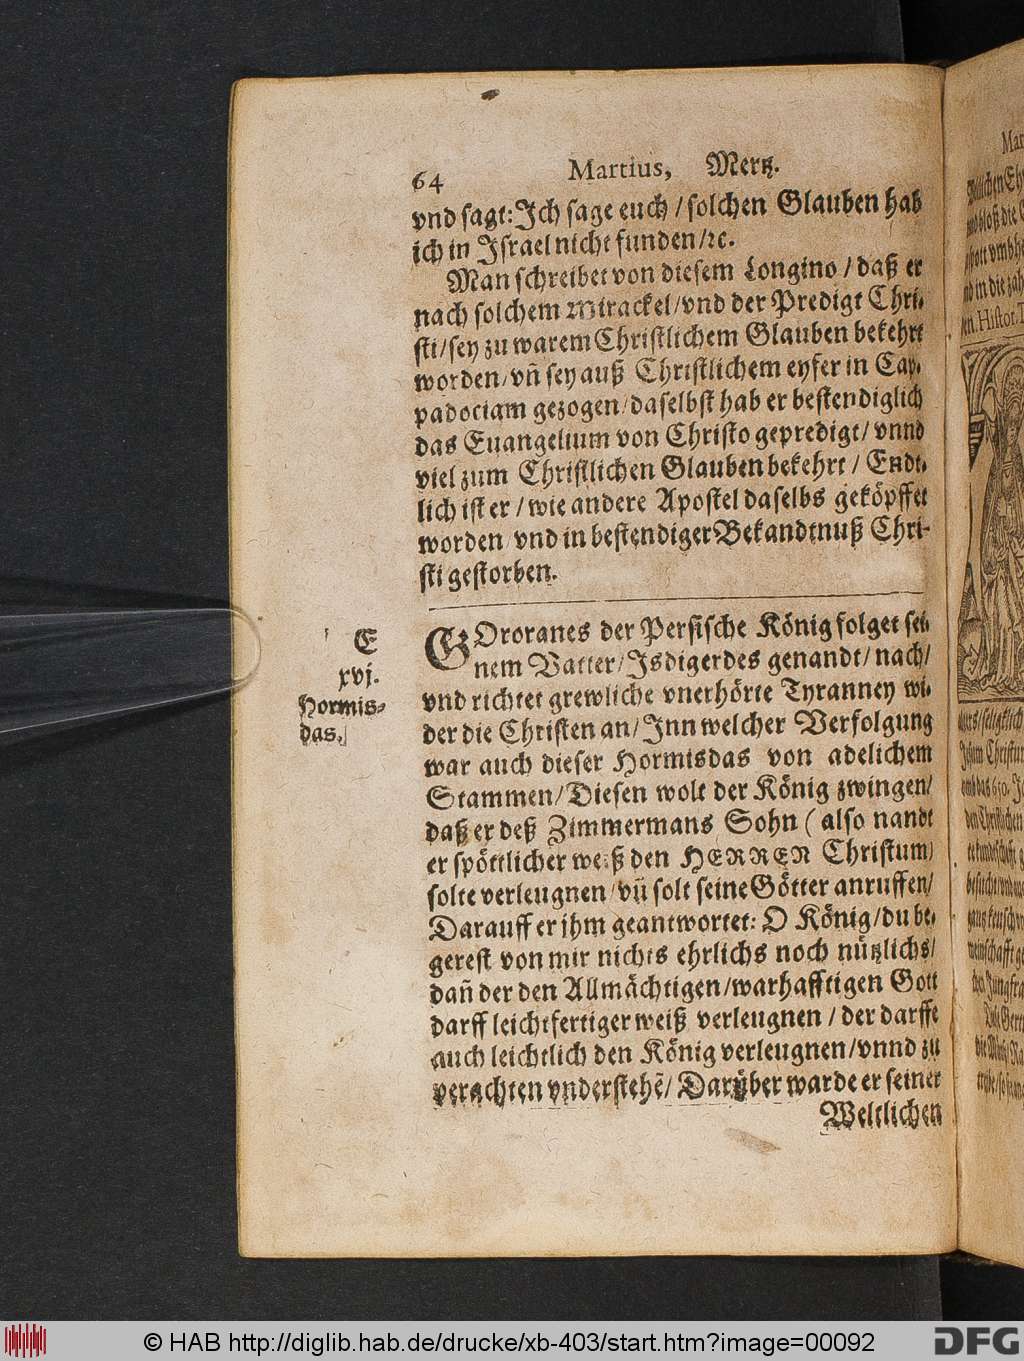 64 Martius, Mertz.
vnd sagt: Ich sage euch / solchen Glauben hab
ich in Israel nicht funden / ꝛc.
Man schreibet von diesem Longino / daß er
nach solchem Mirackel / vnd der Predigt Chri-
sti / sey zu warem Christlichem Glauben bekehrt
worden / vñ sey auß Christlichem eyfer in Cap-
padociam gezogen / daselbst hab er bestendiglich
das Euangelium von Christo gepredigt / vnnd
viel zum Christlichen Glauben bekehrt / Endt-
lich ist er / wie andere Apostel daselbs geköpffet
worden / vnd in bestendiger Bekandtnuß Chri-
sti gestorben.
E
xvj.
Hormis-
das.
GOroranes der Persische König folget sei-
nem Vatter / Isdigerdes genandt / nach /
vnd richtet grewliche vnerhörte Tyranney wi-
der die Christen an / Inn welcher Verfolgung
war auch dieser Hormisdas von adelichem
Stammen / Diesen wolt der König zwingen /
daß er deß Zimmermans Sohn ( also nandt
er spöttlicher weiß den HERREN Christum )
solte verleugnen / vñ solt seine Götter anruffen /
Darauff er jhm geantwortet: O König / du be-
gerest von mir nichts ehrlichs noch nützlichs /
dañ der den Allmächtigen / warhafftigen Gott
darff leichtfertiger weiß verleugnen / der darffe
auch leichtlich den König verleugnen / vnnd zu
verachten vnderstehē / Darüber warde er seiner
Weltlichen
© HAB http://diglib.hab.de/drucke/xb-403/start.htm?image=00092
DFG